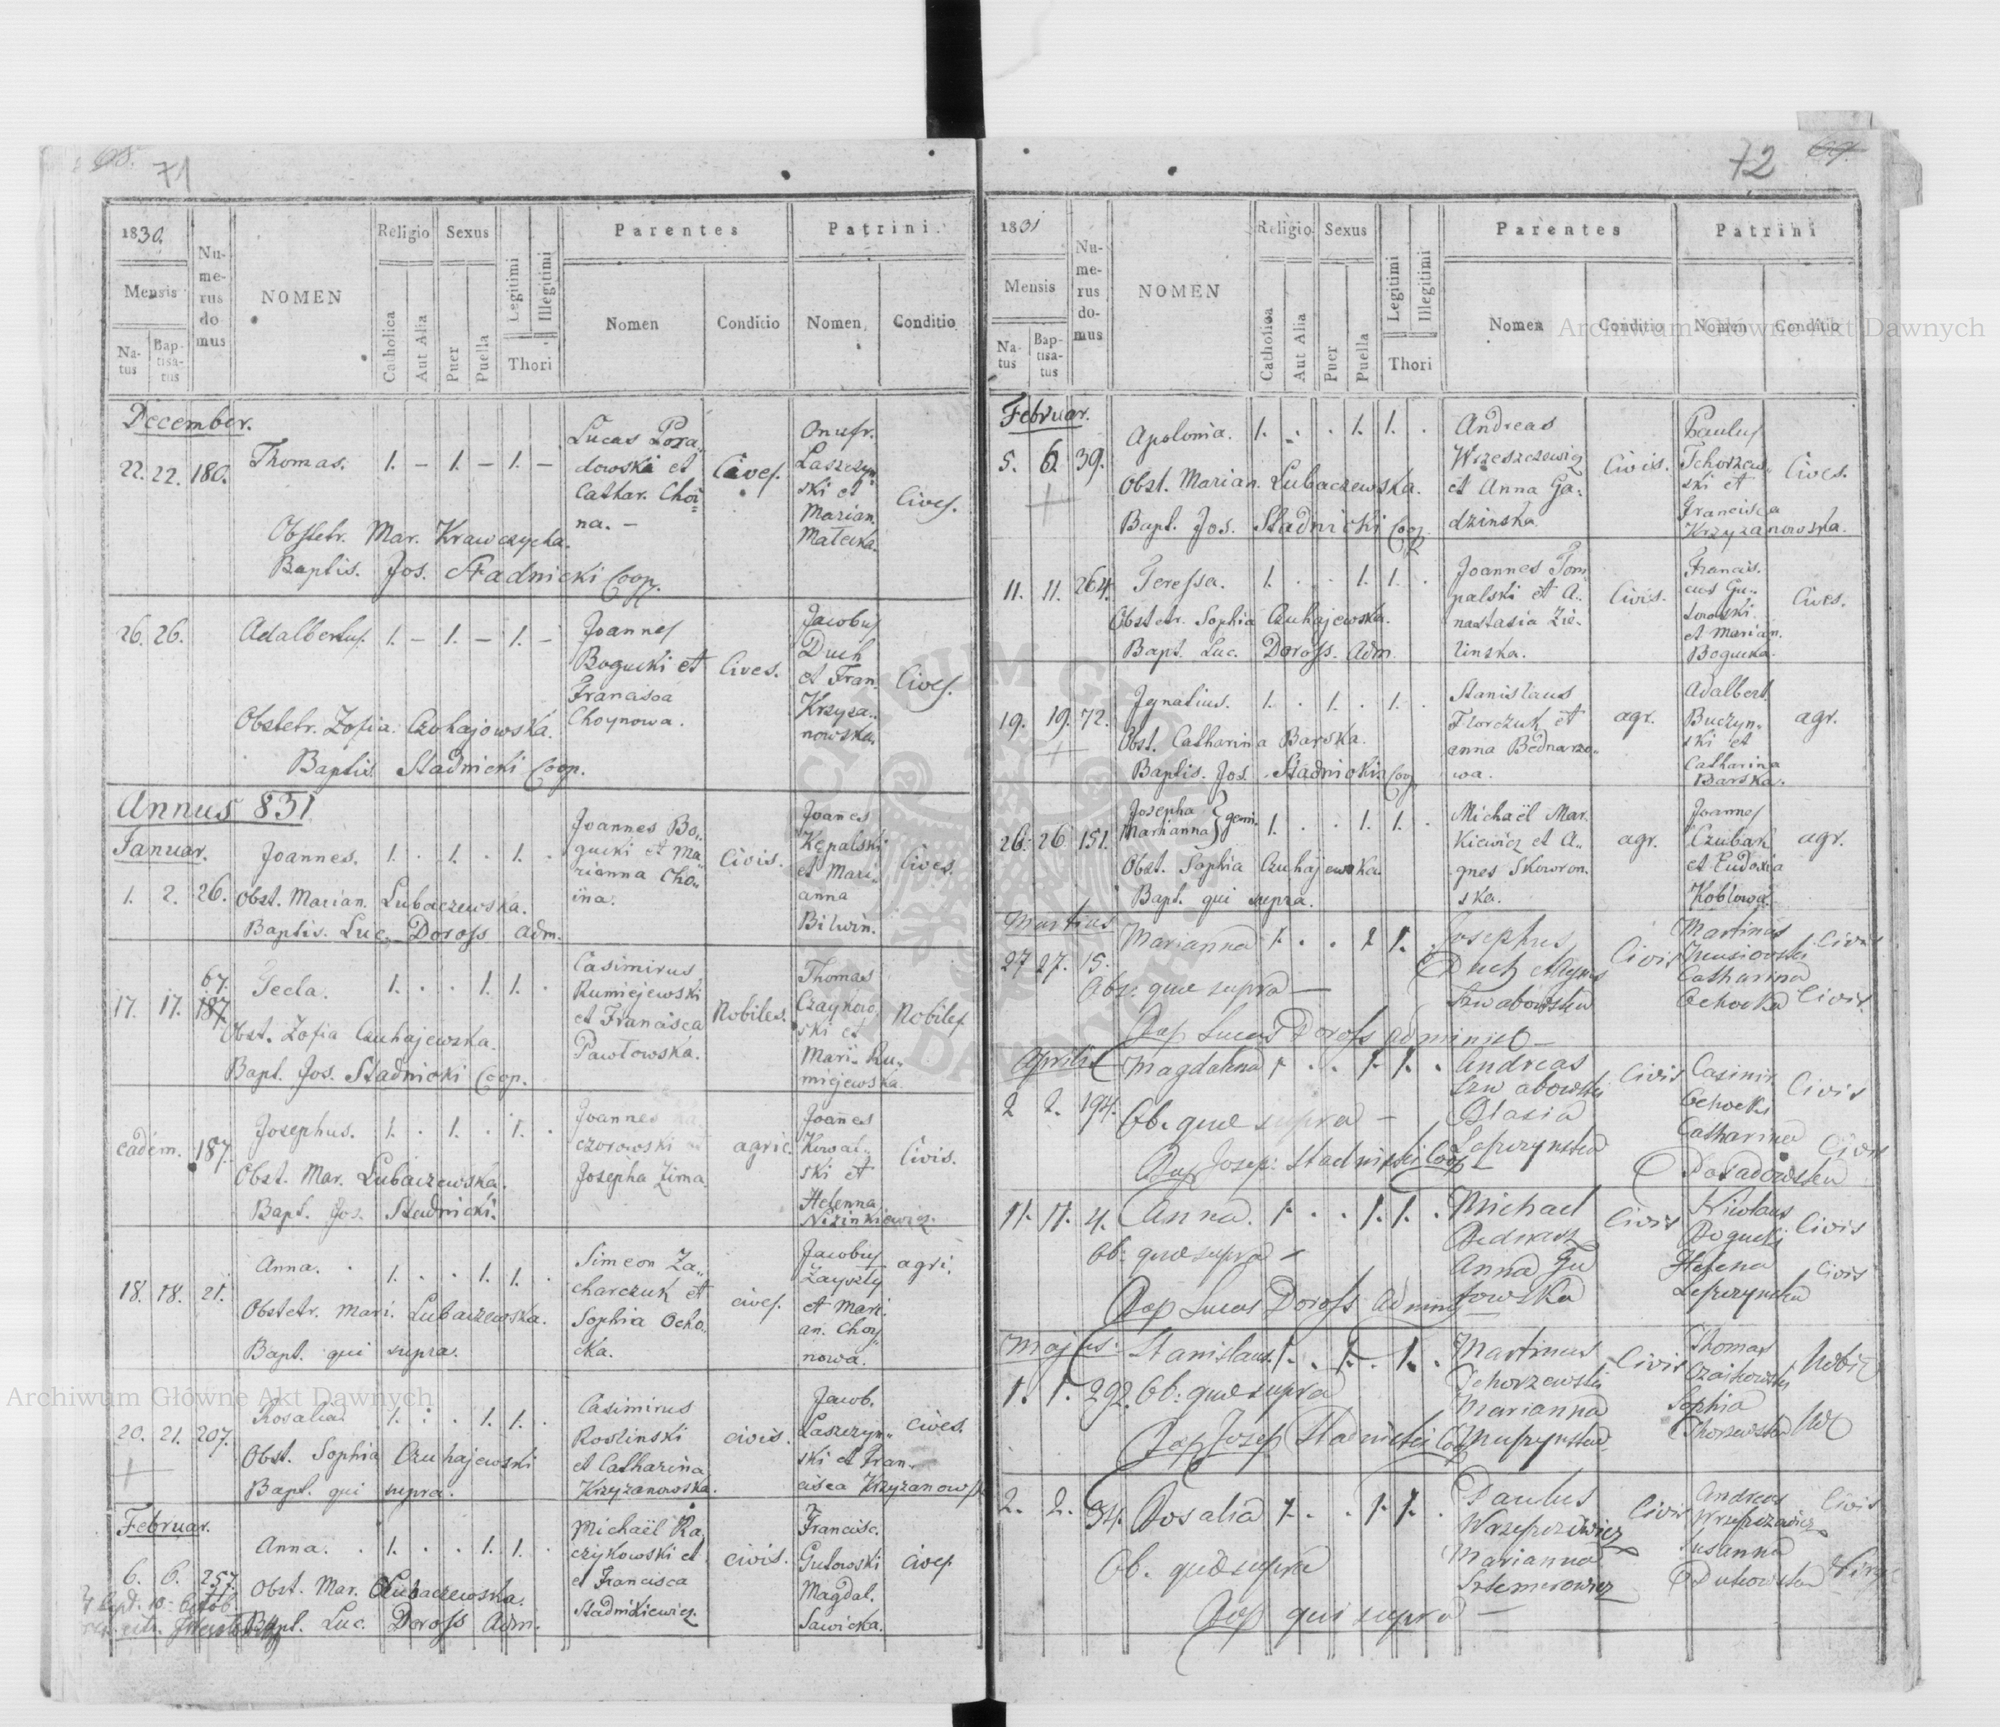 71
1830.
Numerus domus
NOMEN
Religio
Sexus
Legitimi
Illegitimi
Parentes
Patrini.
Mensis
Natus
Baptisatus
Catholica
Aut Alia
Puer
Puella
Thori
Nomen
Conditio
Nomen,
Conditio
December.
22. 22. 180. Thomas. 1. – 1. – 1. –
Lucas Pora
dowski et
Cathar. Choi
na. –
Cives.
Onufr.
Laszczyn
ski et
Marian.
Matecka.
Cives.
Obstetr. Mar. Krawczycha.
Baptis. Jos. Stadnicki Coop.
26. 26. Adalbertus. 1. – 1. – 1. –
Joannes
Bogucki et
Francisca
Choynowa.
Cives.
Jacobus
Duch
et Fran.
Krzyza..
nowska.
Cives.
Obstetr. Zofia Czuhajowska.
Baptis. Stadnicki Coop.
Annus 831
Januar.
1. 2. 26. Joannes. 1. . 1. . 1. .
Joannes Bo..
gucki et Ma
rianna Cho..
ina.
Civis.
Joannes
Kępalski
et Mari..
anna
Bilwin.
Cives.
Obst. Marian. Lubaczewska.
Baptis. Luc. Doross adm.
67.
17. 17. 187. Tecla. 1. . . 1. 1. .
Casimirus
Rumiejewski
et Francisca
Pawłowska.
Nobiles.
Thomas
Czaykow
ski et
Mari. Ru..
miejewska.
Nobiles
Obst. Zofia Czuhajewska.
Bapt. Jos. Stadnicki Coop.
eadem. 187. Josephus. 1. . 1. . 1. .
Joannes
czorowski et
Josepha Zima.
agric.
Joannes
Kowal..
ski et
Helenna
Nizinkiewicz.
Civis.
Obst. Mar. Lubaczewska.
Bapt. Jos. Stadnicki.
18. 18. 21. Anna. 1. . . 1. 1. .
Simeon Za..
charczuk et
Sophia Ocho..
cka.
cives.
Jacobus
Zayszły
et Mari
an. Choy
nowa.
agri.
Obstetr. Mari. Lubaczewska.
Bapt. qui supra.
20. 21. 207. Rosalia. 1. . . 1. 1. .
Casimirus
Roslinski
et Catharina
Krzyzanowska.
civis.
Jacob.
Laszczyn..
ski et Fran..
cisca Krzyzanowska
cives.
Obst. Sophia Czuhajewski
Bapt. qui supra.
Februar.
6. 6. 257. Anna. . 1. . . 1. 1. .
Michaël Ra
czykowski et
et Francisca
Stadnikiewicz.
civis.
Francisc.
Gutowski
Magdal.
Sawicka.
cives
Obst. Mar. Lubaczewska.
Bapt. Luc. Doross Adm.
72
1831
Numerus domus
NOMEN
Religio
Sexus
Legitimi
Illegitimi
Parentes
Patrini
Mensis
Natus
Baptisatus
Catholica
Aut Alia
Puer
Puella
Thori
Nomen
Conditio
Nomen
Conditio
Februar.
5. 6. 39. Apolonia. 1. . . 1. 1. .
Andreas
Wrzeszczewicz
et Anna Ga..
dzinska.
Civis.
Paulus
Tchorzew..
ski et
Francisca
Krzyzanowska.
Cives.
Obst. Marian. Lubaczewska.
Bapt. Jos. Stadnicki Coop.
11. 11. 264. Teressa. 1. . . 1. 1. .
Joannes Pom
palski et A..
nastasia Zie..
linska.
Civis.
Francis.
cus Gu..
towski
et Marian.
Bogucka.
Cives.
Obstetr. Sophia Czuhajewska.
Bapt. Luc. Doross. Adm.
19. 19. 72. Ignatius. 1. . 1. . 1. .
Stanislaus
Florczuk et
anna Bednarzo..
wa.
agr.
Adalbert
Buczyn..
ski et
Catharina
Barska.
agr.
Obst. Catharina Barska.
Baptis. Jos. Stadnicki Coop
26. 26 151. Josepha Marianna } gem. 1. . . 1. 1. .
Michaël Mar.
kiewicz et A..
gnes Skowron.
ska.
agr.
Joannes
Czubak
et Eudoxia
Koblowa.
agr.
Obst. Sophia Czuhajewska
Bapt. qui supra.
Martius
27 27. 15. Marianna 1. . . 1 1. .
Josephus
Duch et Agnes
Szwabowska
Civis
Martinus
Catharina
Ochocka
Civis
Civis.
Obs: quae supra —
Bap Lucas Doross administ —
Aprilis
2 2. 194. Magdalena 1. . . 1. 1. .
Andreas
Szwabowski
Blasia
Leszczynska
Civis
Casimir
Ochocki
Catharina
Posadowska
Civis
Civis
Ob. quae supra –
Bap Josep: Stadnicki Coop
11. 11. 4. Anna. 1. . . 1. 1. .
Michael
Anna Gu
towska
Civis
Nicolaus
Bogucki
Helena
Leszczynska
Civis
Civis
Ob: quae supra –
Bap Lucas Doross Admins
Majus.
1. 1. 292. Stanislaus. 1. . 1. . 1. .
Martinus
Tchorzewski
Marianna
Civis
Thomas
Czaikowski
Sophia
Thorzewska
Nobil
Ob: quae supra
Bap Josep Stadnicki Coop
2. 2. 34. Rosalia 1. . . 1. 1. .
Paulus
Wrzeszczewicz
Marianna
Sztemerowicz
Civis
Andreas
Wrzeszczewicz
Susanna
Dutkowska
Civis
Ob. quae supra
Bap qui supra —
Archiwum Główne Akt Dawnych
Archiwum Główne Akt Dawnych